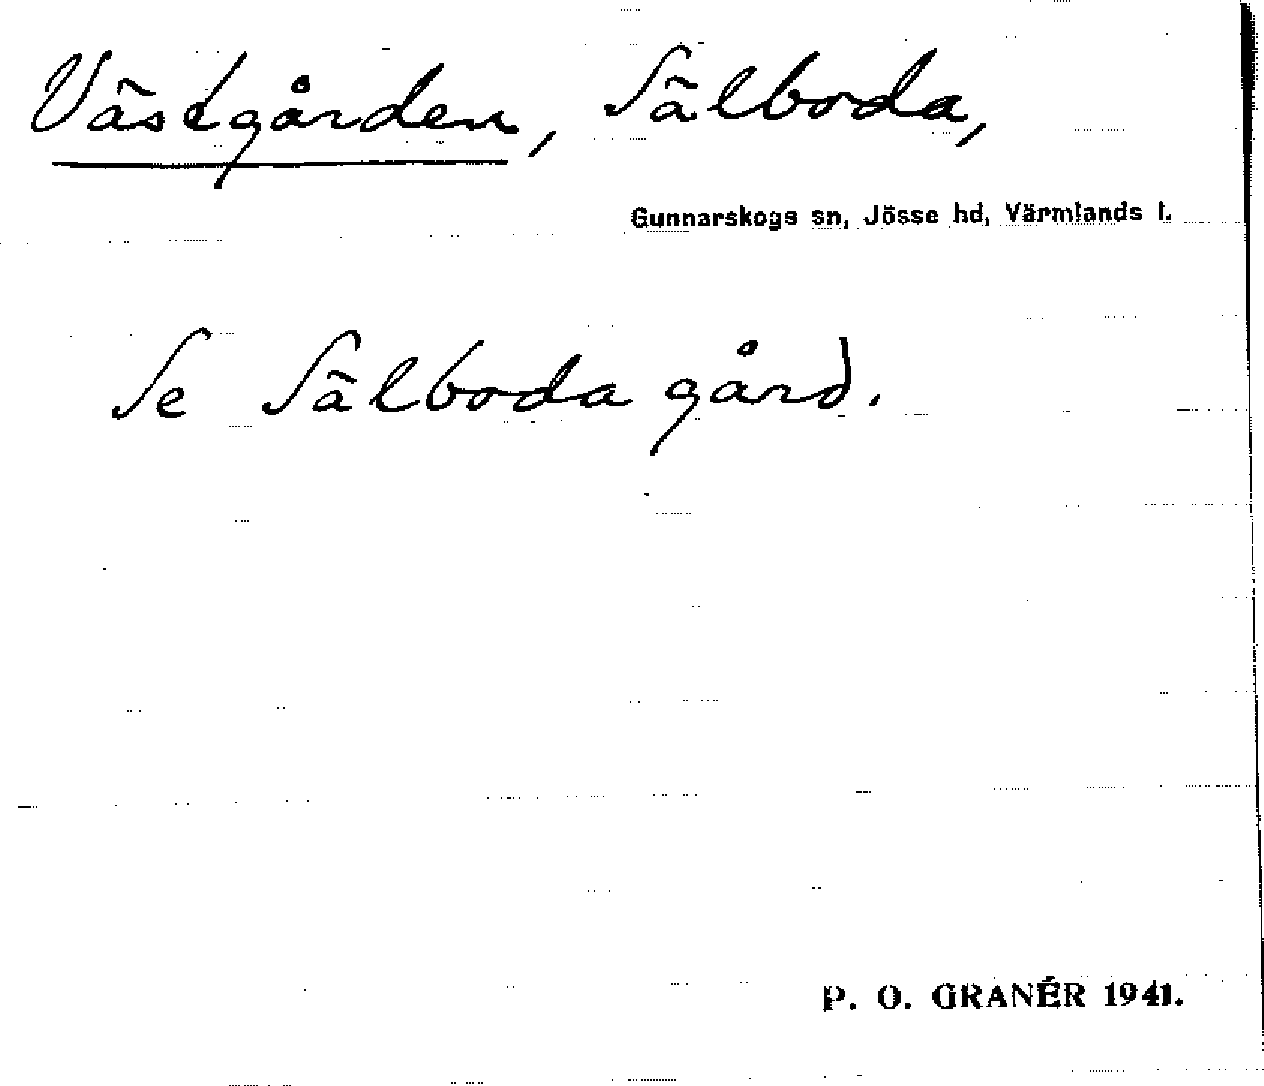 Västgården, Sälboda,
Gunnarskogs sn, Jösse hd, Värmlands l.
Se Sälboda gård.
P. O. GRANÉR 1941.